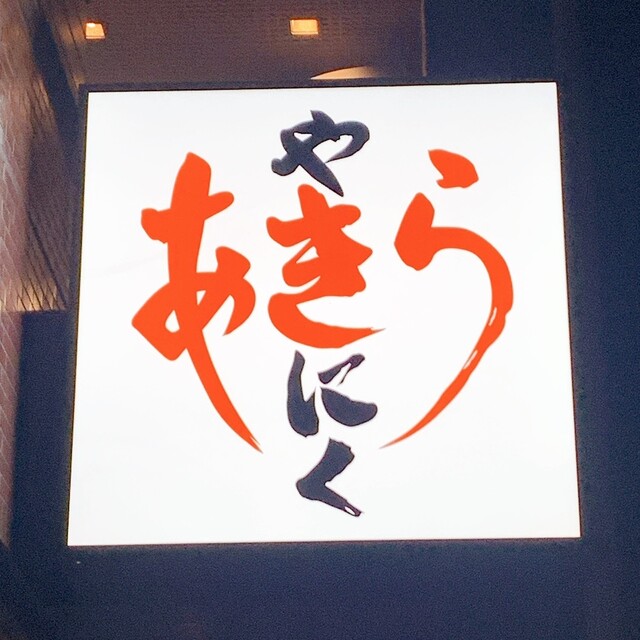 やきにく
あきら